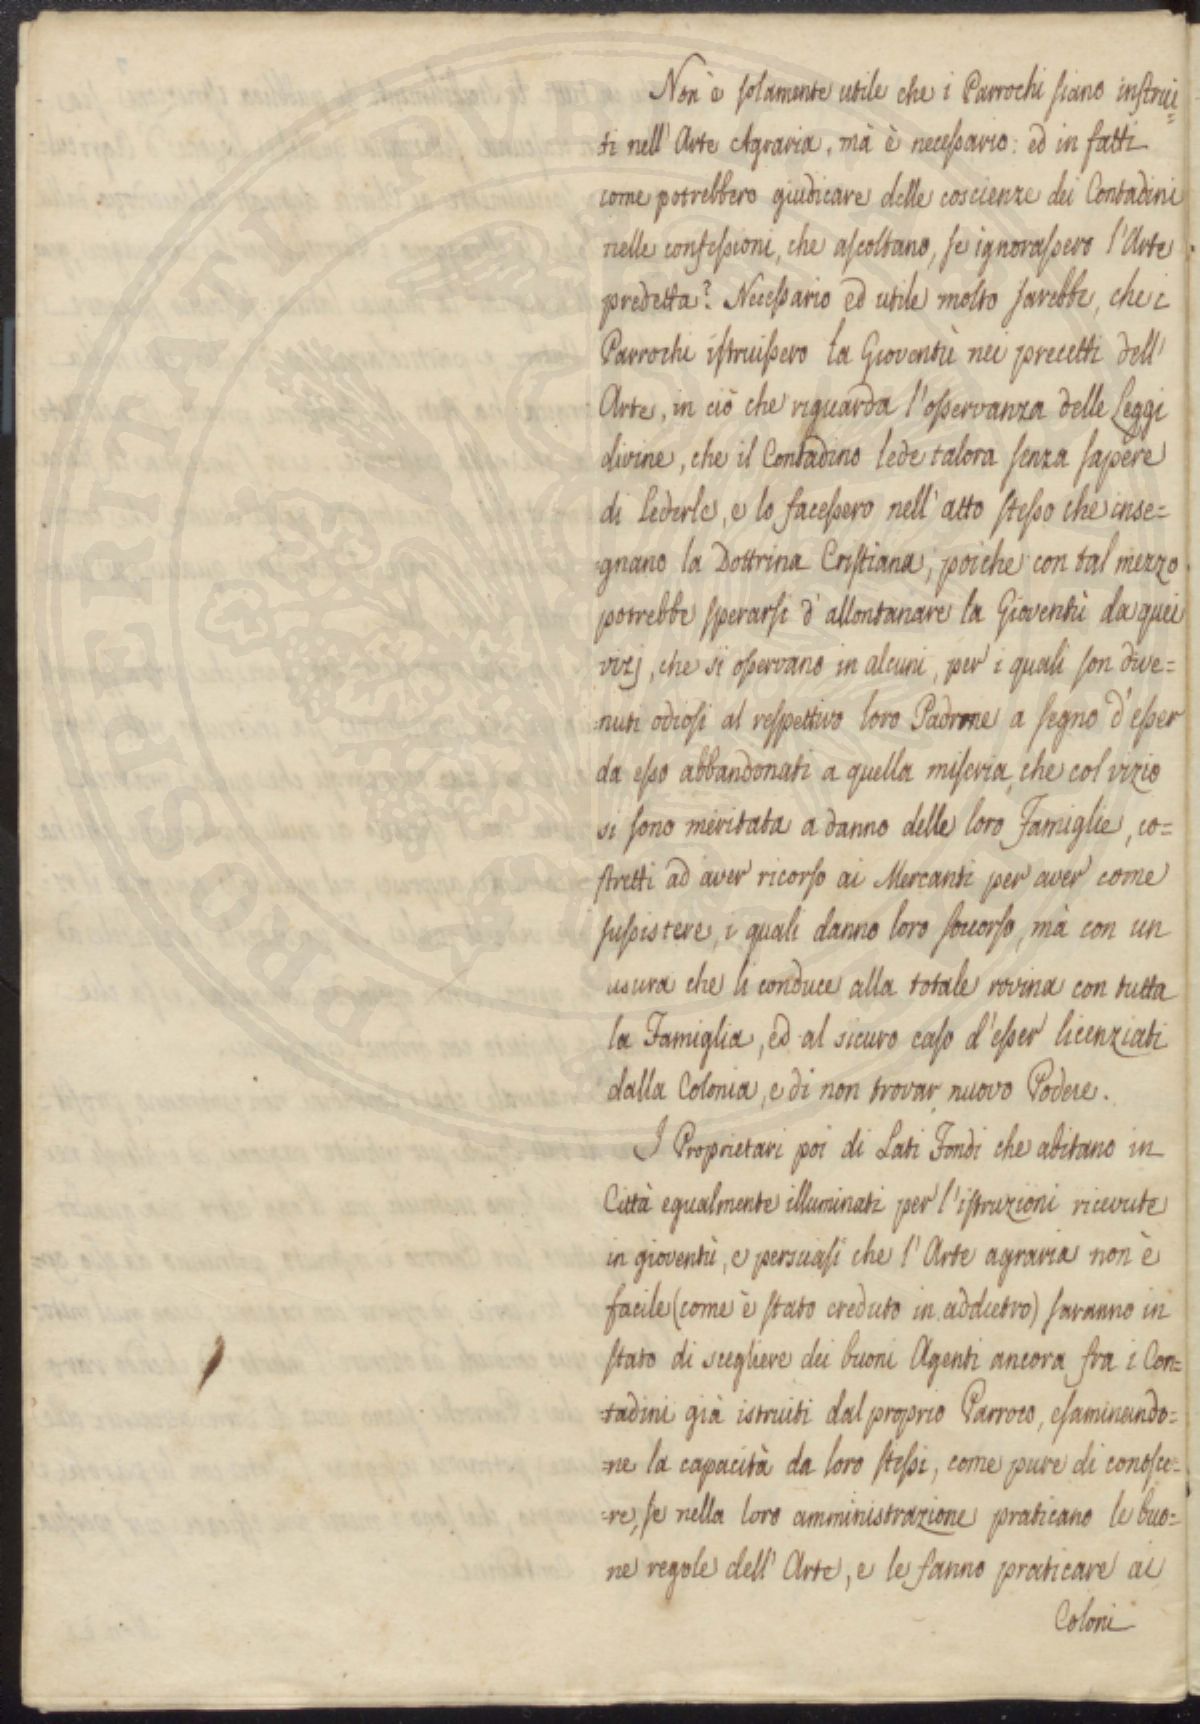 Non è solamente utile che i Parrochi siano instrui=
ti nell' Arte Agraria, mà è necessario: ed in fatti
come potrebbero giudicare delle coscienze dei Contadini
nelle confessioni, che ascoltano, se ignorassero l'Arte
predetta? Necessario ed utile molto sarebbe, che i
Parrochi istruissero la Gioventù nei precetti dell'
Arte, in ciò che riguarda l'osservanza delle Leggi
divine, che il Contadino lede talora senza sapere
di lederle, e lo facessero nell' atto stesso che inse=
=gnano la Dottrina Cristiana, poiche con tal mezzo
potrebbe sperarsi d' allontanare la Gioventù da quei
vizj, che si osservano in alcuni, per i quali son dive=
=nuti odiosi al respettivo loro Padrone a segno d'esser
da esso abbandonati a quella miseria, che col vizio
si sono meritata a danno delle loro Famiglie, co=
stretti ad aver ricorso ai Mercanti per aver come
sussistere, i quali danno loro soccorso, mà con un
usura che li conduce alla totale rovina con tutta
la Famiglia, ed al sicuro caso d'esser licenziati
dalla Colonia, e di non trovar nuovo Podere.
I Proprietari poi di Lati Fondi che abitano in
Città egualmente illuminati per l'istruzioni ricevute
in gioventù, e persuasi che l' Arte agraria non è
facile (come è stato creduto in addietro) saranno in
stato di scegliere dei buoni Agenti ancora fra i Con=
=tadini già istruiti dal proprio Parroco, esaminando=
=ne la capacità da loro stessi, come pure di conosce=
=re, se nella loro amministrazione praticano le buo=
ne regole dell' Arte, e le fanno praticare ai
Coloni
PROSPERITATI PUBLICAE